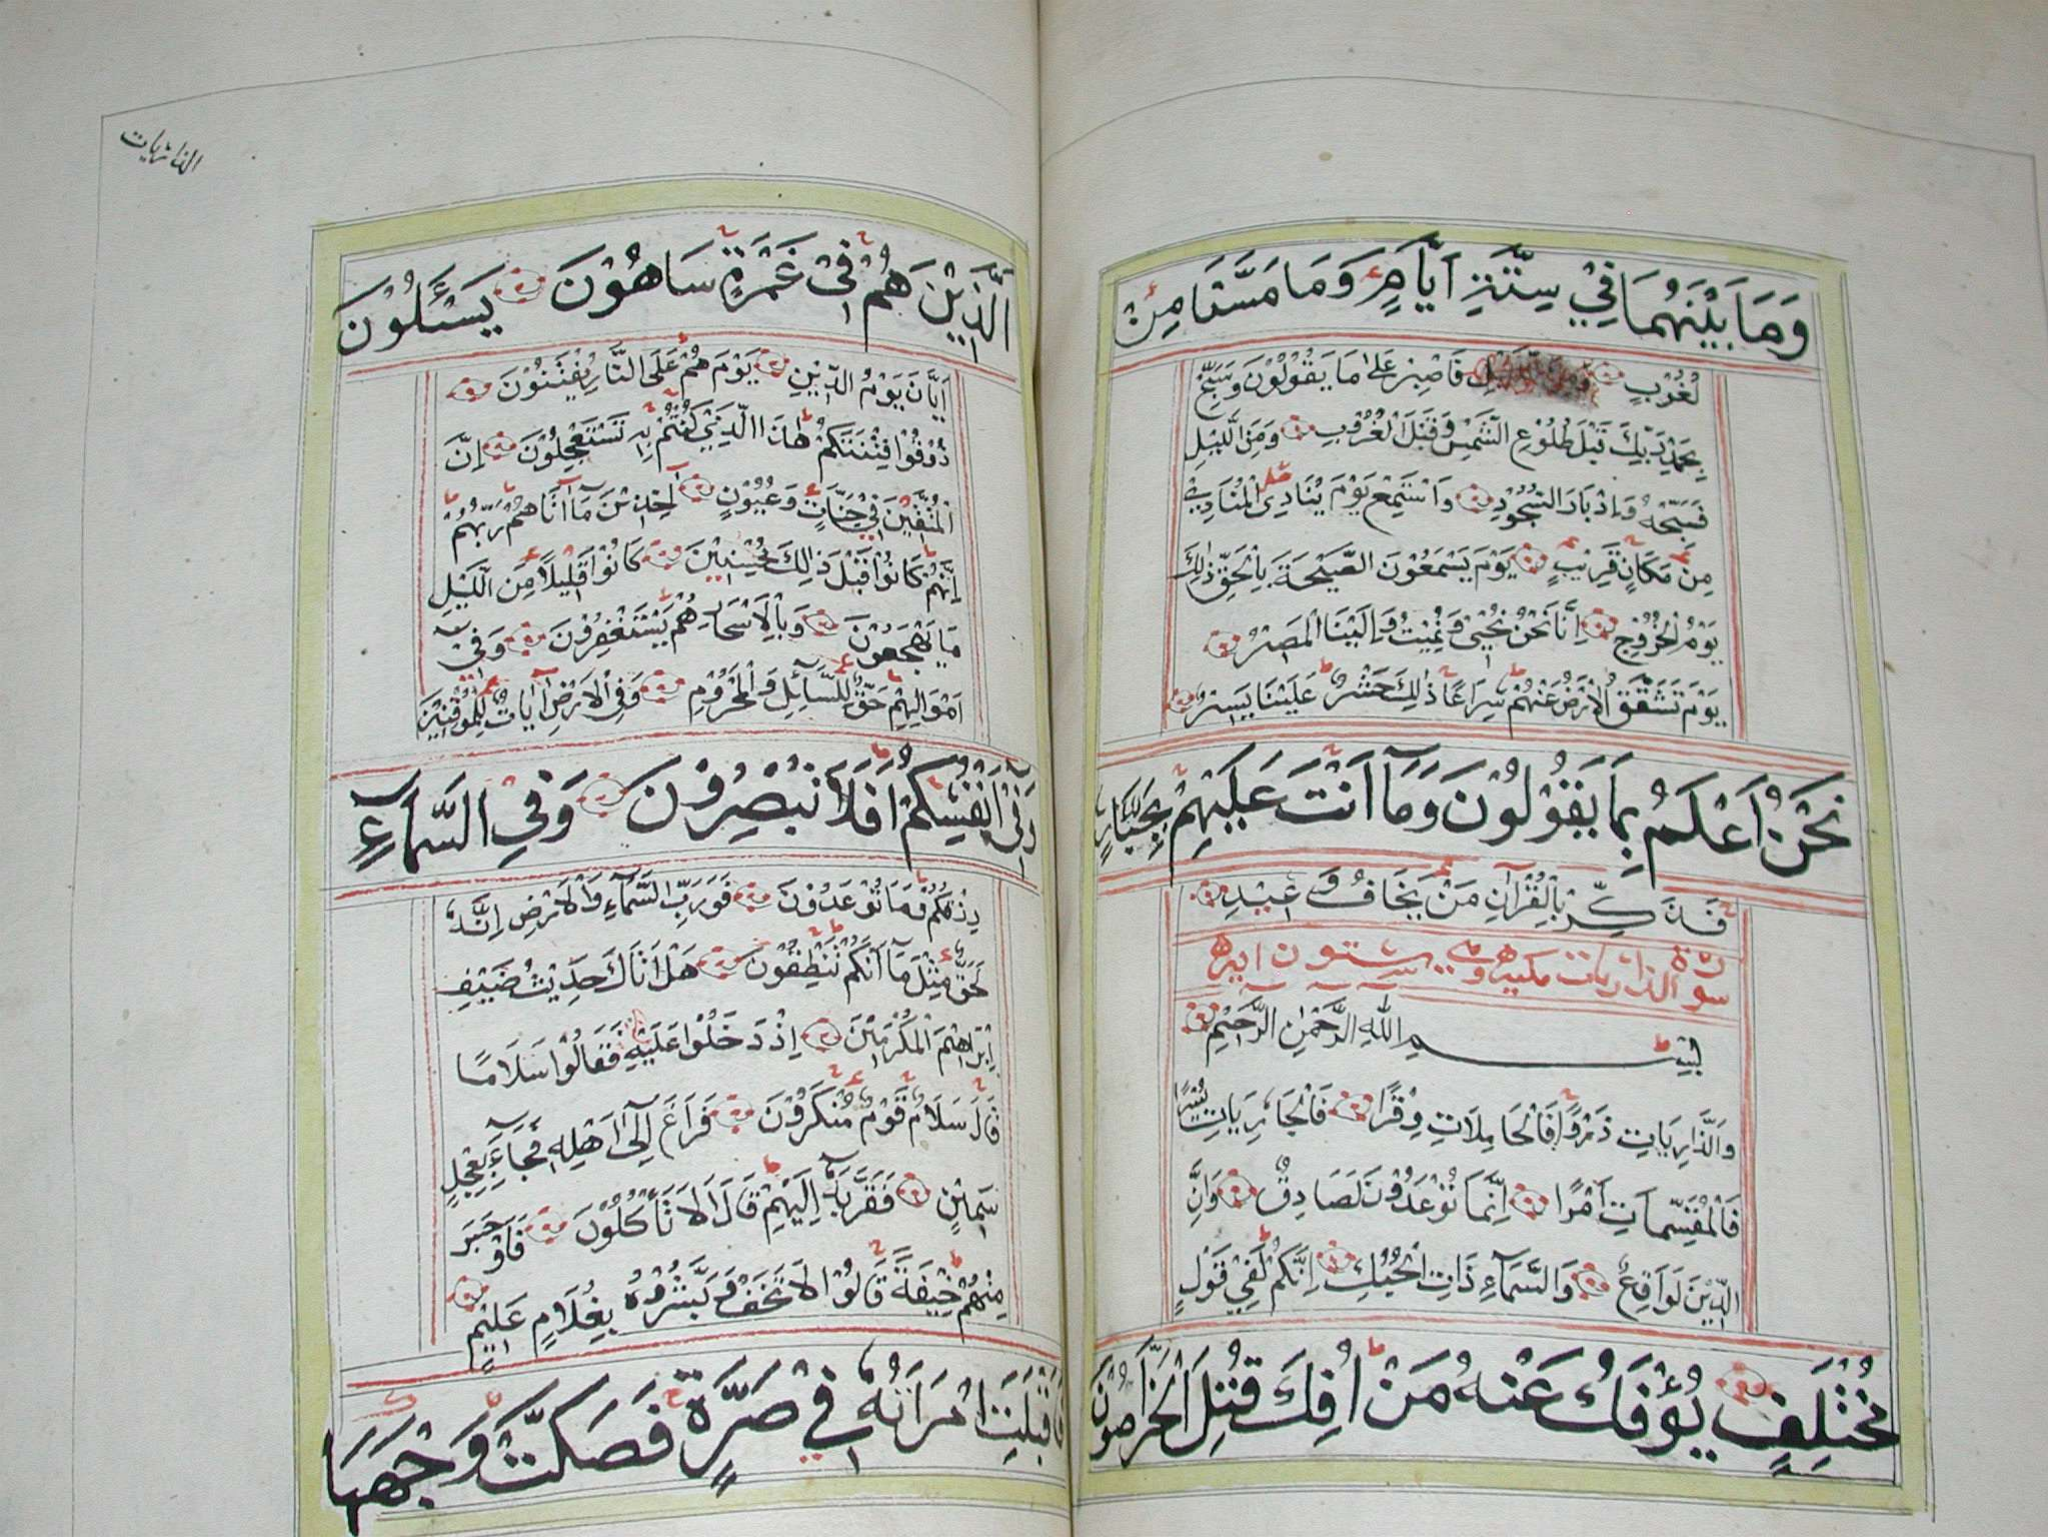 وَمَا بَيْنَهُمَا فِيْ سِتَّةِ اَيَّامٍ وَمَا مَسَّنَا مِنْ
لُغُوْبٍ فَاصْبِرْ عَلٰى مَا يَقُوْلُوْنَ وَسَبِّحْ
بِحَمْدِ رَبِّكَ قَبْلَ طُلُوْعِ الشَّمْسِ وَقَبْلَ الْغُرُوْبِ وَمِنَ اللَّيْلِ
فَسَبِّحْهُ وَاِدْبَارَ السُّجُوْدِ وَاسْتَمِعْ يَوْمَ يُنَادِى الْمُنَادِىْ
مِنْ مَكَانٍ قَرِيْبٍ يَوْمَ يَسْمَعُوْنَ الصَّيْحَةَ بِالْحَقِّ ذٰلِكَ
يَوْمُ الْخُرُوْجِ اِنَّا نَحْنُ نُحْيٖ وَنُمِيْتُ وَاِلَيْنَا الْمَصِيْرُ
يَوْمَ تَشَقَّقُ الْاَرْضُ عَنْهُمْ سِرَاعًا ذٰلِكَ حَشْرٌ عَلَيْنَا يَسِيْرٌ
نَحْنُ اَعْلَمُ بِمَا يَقُوْلُوْنَ وَمَآ اَنْتَ عَلَيْهِمْ بِجَبَّارٍ
فَذَكِّرْ بِالْقُرْاٰنِ مَنْ يَخَافُ وَعِيْدِ
سورة الذاريات مكيه وهي ستون ايه
بِسْمِ اللهِ الرَّحْمٰنِ الرَّحِيْمِ
وَالذَّارِيَاتِ ذَرْوًا فَالْحَامِلَاتِ وِقْرًا فَالْجَارِيَاتِ يُسْرًا
فَالْمُقَسِّمَاتِ اَمْرًا اِنَّمَا تُوْعَدُوْنَ لَصَادِقٌ وَاِنَّ
الدِّيْنَ لَوَاقِعٌ وَالسَّمَآءِ ذَاتِ الْحُبُكِ اِنَّكُمْ لَفِيْ قَوْلٍ
مُخْتَلِفٍ يُؤْفَكُ عَنْهُ مَنْ اُفِكَ قُتِلَ الْخَرَّاصُوْنَ
الذاريات
الَّذِيْنَ هُمْ فِيْ غَمْرَةٍ سَاهُوْنَ يَسْئَلُوْنَ
اَيَّانَ يَوْمُ الدِّيْنِ يَوْمَ هُمْ عَلَى النَّارِ يُفْتَنُوْنَ
ذُوْقُوْا فِتْنَتَكُمْ هٰذَا الَّذِيْ كُنْتُمْ بِهٖ تَسْتَعْجِلُوْنَ اِنَّ
الْمُتَّقِيْنَ فِيْ جَنَّاتٍ وَعُيُوْنٍ اٰخِذِيْنَ مَآ اٰتَاهُمْ رَبُّهُمْ
اِنَّهُمْ كَانُوْا قَبْلَ ذٰلِكَ مُحْسِنِيْنَ كَانُوْا قَلِيْلًا مِنَ الَّيْلِ
مَا يَهْجَعُوْنَ وَبِالْاَسْحَارِ هُمْ يَسْتَغْفِرُوْنَ وَفِيْ
اَمْوَالِهِمْ حَقٌّ لِلسَّآئِلِ وَالْمَحْرُوْمِ وَفِي الْاَرْضِ اٰيَاتٌ لِلْمُوْقِنِيْنَ
وَفِيْ اَنْفُسِكُمْ اَفَلَا تُبْصِرُوْنَ وَفِي السَّمَآءِ
رِزْقُكُمْ وَمَا تُوْعَدُوْنَ فَوَرَبِّ السَّمَآءِ وَالْاَرْضِ اِنَّهٗ
لَحَقٌّ مِثْلَ مَآ اَنَّكُمْ تَنْطِقُوْنَ هَلْ اَتَاكَ حَدِيْثُ ضَيْفِ
اِبْرَاهِيْمَ الْمُكْرَمِيْنَ اِذْ دَخَلُوْا عَلَيْهِ فَقَالُوْا سَلَامًا
قَالَ سَلَامٌ قَوْمٌ مُنْكَرُوْنَ فَرَاغَ اِلٰٓى اَهْلِهٖ فَجَآءَ بِعِجْلٍ
سَمِيْنٍ فَقَرَّبَهٗٓ اِلَيْهِمْ قَالَ اَلَا تَأْكُلُوْنَ فَاَوْجَسَ
مِنْهُمْ خِيْفَةً قَالُوْا لَا تَخَفْ وَبَشَّرُوْهُ بِغُلَامٍ عَلِيْمٍ
فَاَقْبَلَتِ امْرَاَتُهٗ فِيْ صَرَّةٍ فَصَكَّتْ وَجْهَهَا